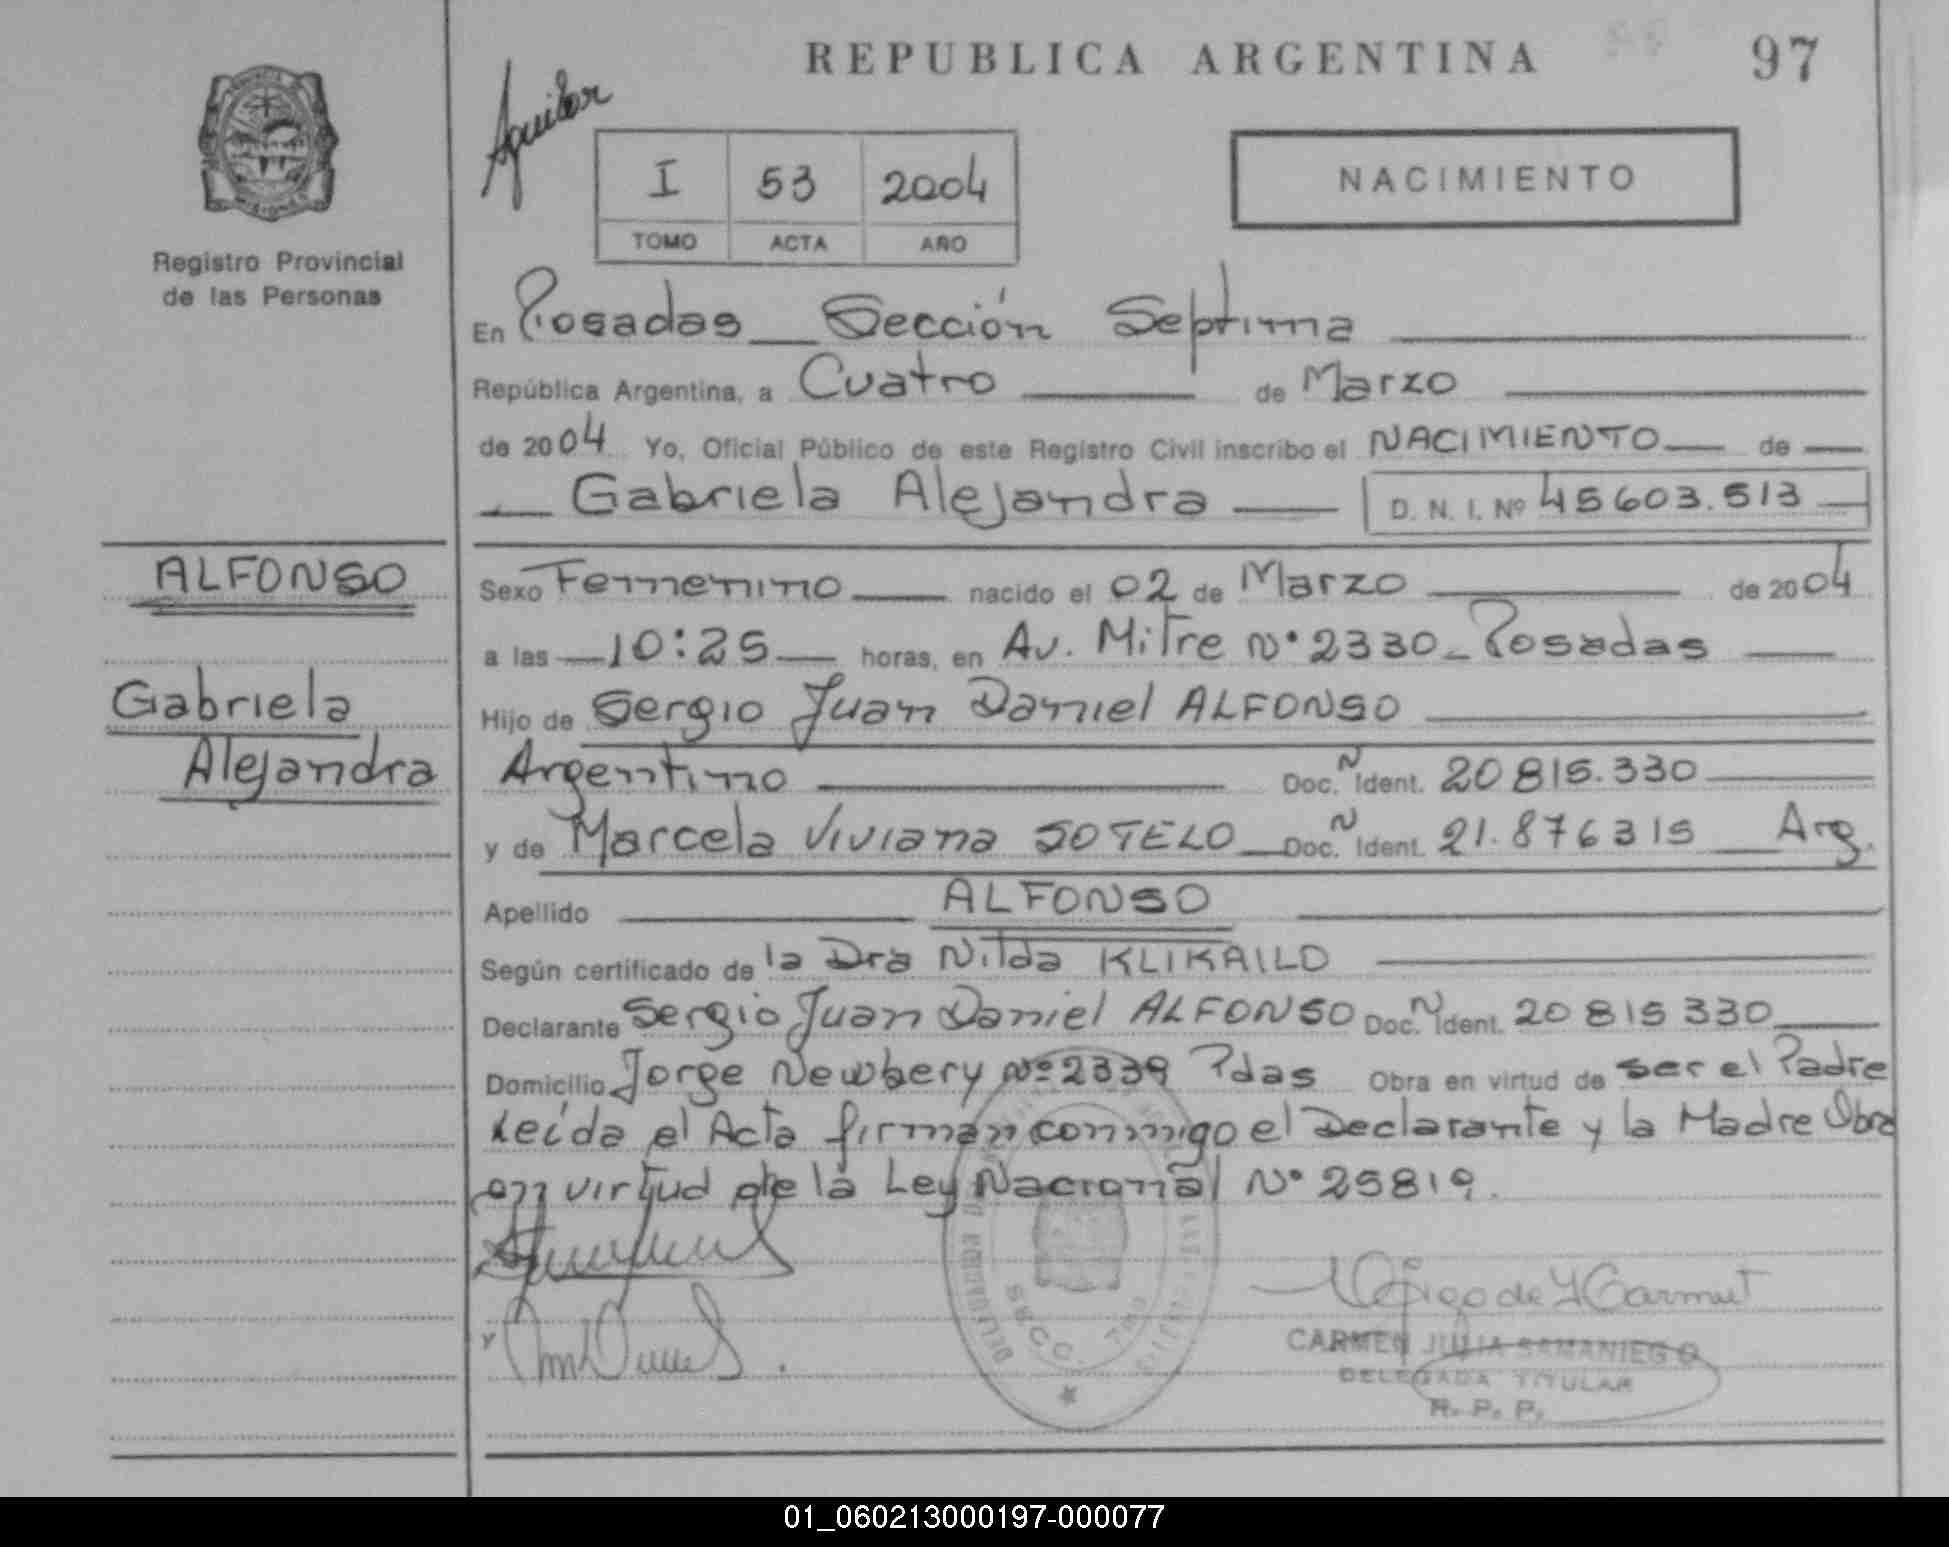 REPUBLICA ARGENTINA
97
Aguilar
I 53 2004
TOMO ACTA AÑO
NACIMIENTO
MISIONES
Registro Provincial
de las Personas
En Posadas Sección Septima
República Argentina, a Cuatro de Marzo
de 2004 Yo, Oficial Público de este Registro Civil inscribo el NACIMIENTO de
Gabriela Alejandra D. N. I. Nº 45603.513
ALFONSO
Gabriela
Alejandra
Sexo Femenino nacido el 02 de Marzo de 2004
a las 10:25 horas, en Av. Mitre Nº 2330 - Posadas
Hijo de Sergio Juan Daniel ALFONSO
Argentino Doc. N Ident. 20815.330
y de Marcela Viviana SOTELO Doc. N Ident. 21.876315 Arg.
Apellido ALFONSO
Según certificado de la Dra Nilda KLIKAILO
Declarante Sergio Juan Daniel ALFONSO Doc. N Ident. 20815330
Domicilio Jorge Newbery Nº 2339 Pdas Obra en virtud de ser el Padre
Leída el Acta firman conmigo el Declarante y la Madre Obra
en virtud de la Ley Nacional Nº 25819.
y
SECC. 7ma
CARMEN JULIA SAMANIEGO
DELEGADA TITULAR
R. P. P.
01_060213000197-000077